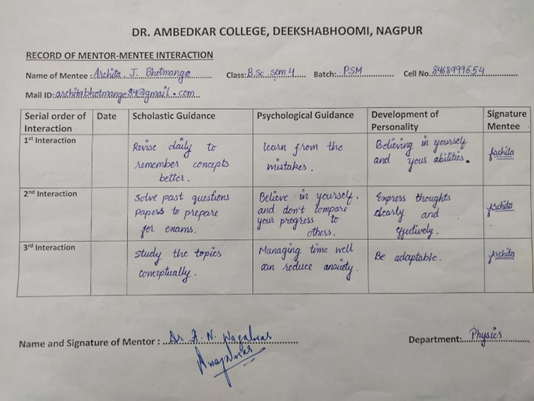 DR. AMBEDKAR COLLEGE, DEEKSHABHOOMI, NAGPUR
RECORD OF MENTOR-MENTEE INTERACTION
Name of Mentee: Archita J. Bhotmange Class: B.Sc sem 4 Batch: PSM Cell No. 8468999654
Mail ID: architabhotmange84@gmail.com
Serial order of Interaction Date Scholastic Guidance Psychological Guidance Development of Personality Signature Mentee
1st Interaction
Revise daily to
remember concepts
better.
learn from the
mistakes.
Believing in yourself
and your abilities.
Archita
2nd Interaction
Solve past questions
papers to prepare
for exams.
Believe in yourself.
and don't compare
your progress to
others.
Express thoughts
clearly and
effectively.
Archita
3rd Interaction
Study the topics
conceptually.
Managing time well
can reduce anxiety.
Be adaptable.
Archita
Name and Signature of Mentor : Dr. A. N. Department: Physics